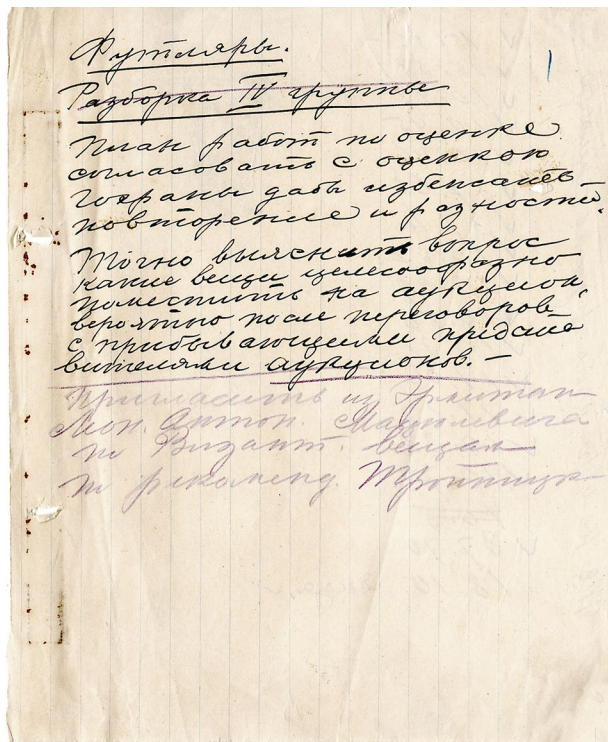 Футляры.
Разборка IV группы
План работ по оценке
согласовать с оценкою
Гохраны дабы избежать
повторение и разности.
Точно выяснить вопрос
какие вещи целесообразно
поместить на аукцион,
вероятно после переговоров
с прибывающими предста
вителями аукционов. —
Пригласить из Эрмитаж
Леон. Антон. Мацулевича
по Визант. вещам
по рекоменд. Тройницк